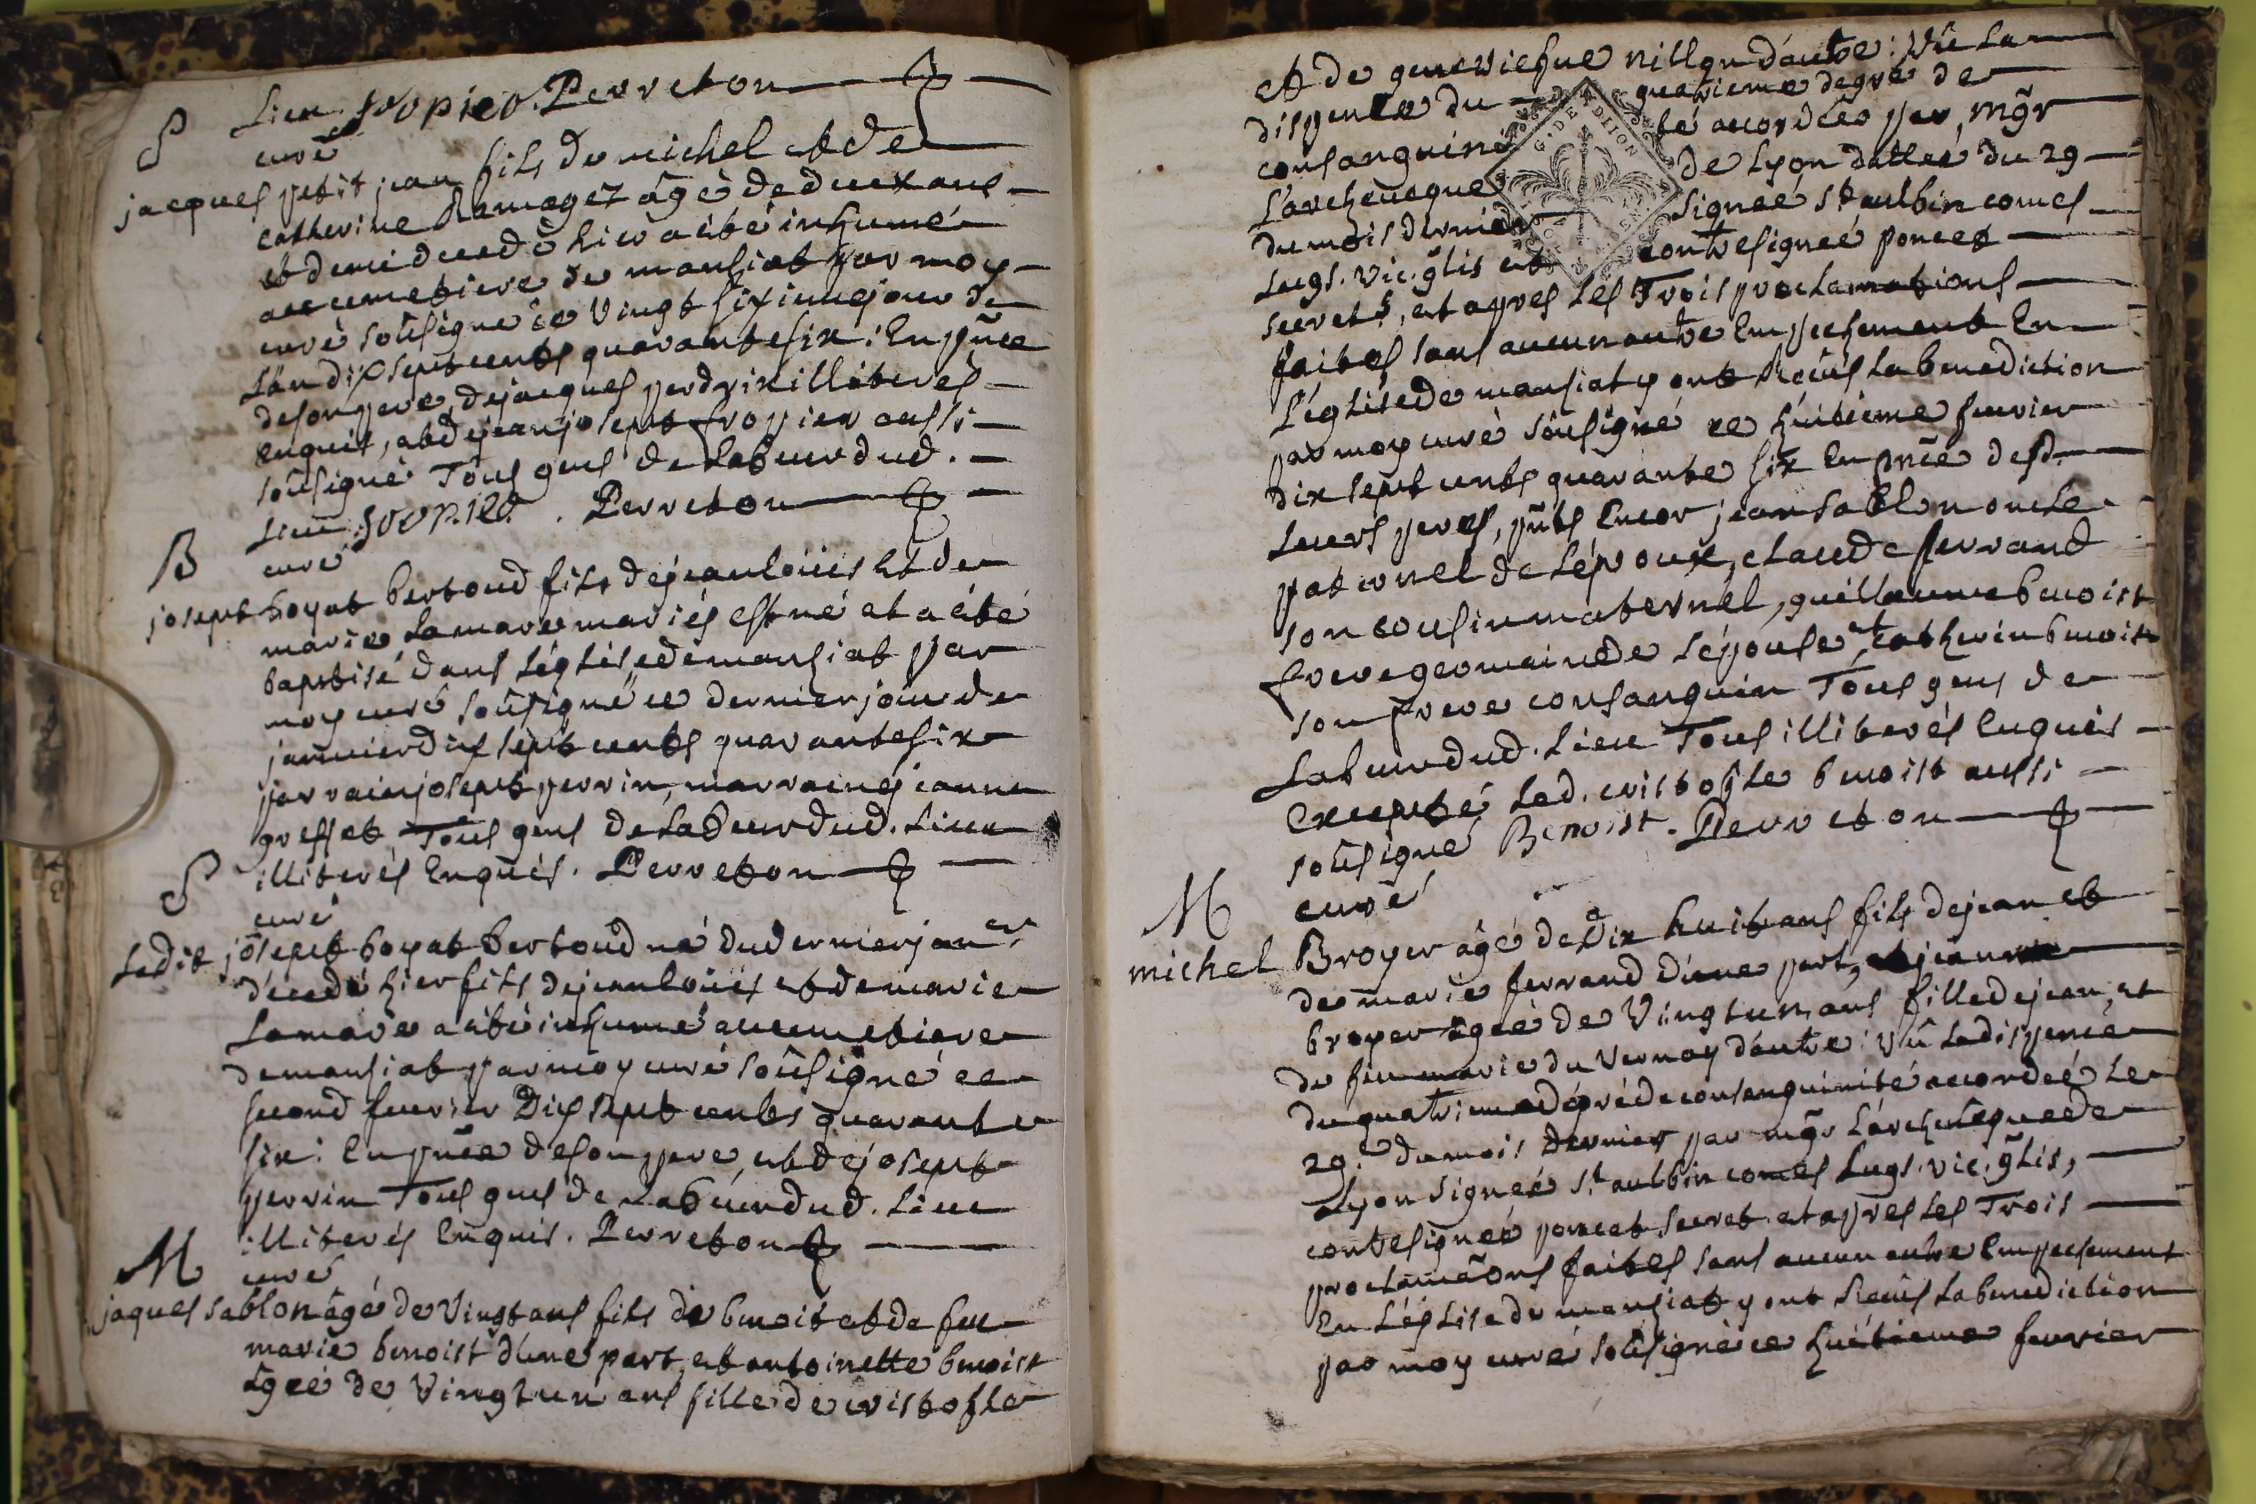 Lieu fropier. Perreton
S curé
jacques petit jean fils de michel et de
catherine Ramagez âgé de deux ans
et demi decedé hier a été inhumé
au cemetiere de mansiat par moy
curé soûsigné ce vingt sixieme jour de
L'an dix sept cents quarante six: En pñce
de son pere, de jacques perdrix illiterés
enquis, et de jean josept fropier aussi
soûsigné Tous gens de Labeur dud.
Lieu. fropier. Perreton
B curé
josept boyat bertoud fils de jean loüis et de
marie Lamare mariés est né et a été
baptisé dans L'église de mansiat par
moy curé soûsigné ce dernier jour de
janvier dix sept cents quarante six
parrain josept perrin, marraine jeanne
greffet Tous gens de Labeur dud. Lieu
illiterés Enquis. Perreton
S curé
Ledit josept boyat bertoud né du dernier janer
décedé hier fils de jean loüis et de marie
Lamare a été inhumé au cemetiere
de mansiat par moy curé soûsigné ce
second fevrier Dix sept cents quarante
six: En pñce de son pere, et de josept
perrin Tous gens de Labeur dud. Lieu
illiterés Enquis. Perreton
M curé
jaques sablon âgé de vingt ans fils de benoit et de feu
marie benoist d'une part, et antoinette benoist
âgée de vingt un ans fille de cristofle
et de geneviefve nillon d'autre: Vû La
dispence du quatrieme degré de
consanguinité accordée par mgr
L'archeveque de Lyon dattée du 29
du mois dernier signée st aulbin comes
Lugd. vic. glis et contresignée poncet
secret, et apres Les Trois proclamations
faites sans aucun autre Empechement En
L'église de mansiat y ont Reçûs La benediction
par moy curé soûsigné ce huitieme fevrier
dix sept cents quarante six En pñce desd.
Leurs peres, pñts Encor jean sablon oncle
paternel de L'époux, claude ferrand
son cousin maternel, guillaume benoist
frere germain de L'épouse, et catherin benoist
son frere consanguin Tous gens de
Labeur dud. Lieu Tous illiterés Enquis
Excepté Led. cristofle benoist aussi
soûsigné Benoist. Perreton
M curé
michel Broyer âgé de dix huit ans fils de jean et
de marie ferrand d'une part, et jeanne
broyer âgée de vingt un ans fille de jean, et
de feu marie du vernoy d'autre: vû La dispence
du quatrieme dégré de consanguinité accordée Le
29. du mois dernier par mgr L'archevêque de
Lyon signée st aulbin comes Lugd. vic. glis,
contresignée poncet secret et apres Les Trois
proclamâons faites sans aucun autre Empechement
En L'église de mansiat y ont Reçûs La benediction
par moy curé soûsigné ce huitieme fevrier
G. DE DIJON